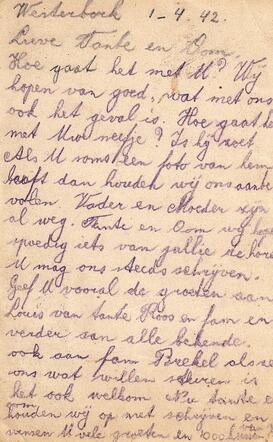 Westerbork 1-4.42.
Lieve Tante en Oom
Hoe gaat het met U? Wij
hopen van goed, wat met ons
ook het geval is. Hoe gaat het
met Uw neefje? Is hij zoet
Als U soms een foto van hem
heeft dan houden wij ons aanbe
volen. Vader en Moeder zijn
al weg. Tante en Oom wij hopen
spoedig iets van jullie te hore
U mag ons steeds schrijven.
Geef U vooral de groeten aan
Louis van tante Roos en fam en
verder aan alle bekende.
ook aan fam Brekel als ze
ons wat willen sturen is
het ook welkom Nu tante e
oom
houden wij op met schrijven en
wensen U vele groeten en van